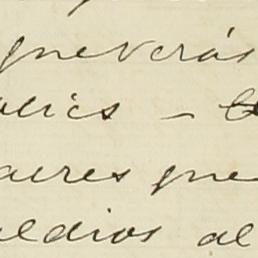 que verás
olics –
aires que
aldios al